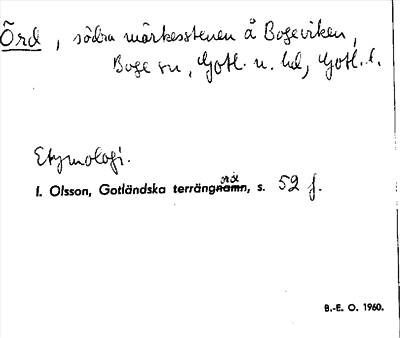 Örd, södra märkesstenen å Bogeviken,
Boge sn, Gotl. n. hd, Gotl. l.
Etymologi.
I. Olsson, Gotländska terrängnamn, s. 52 f.
ord
B.-E. O. 1960.